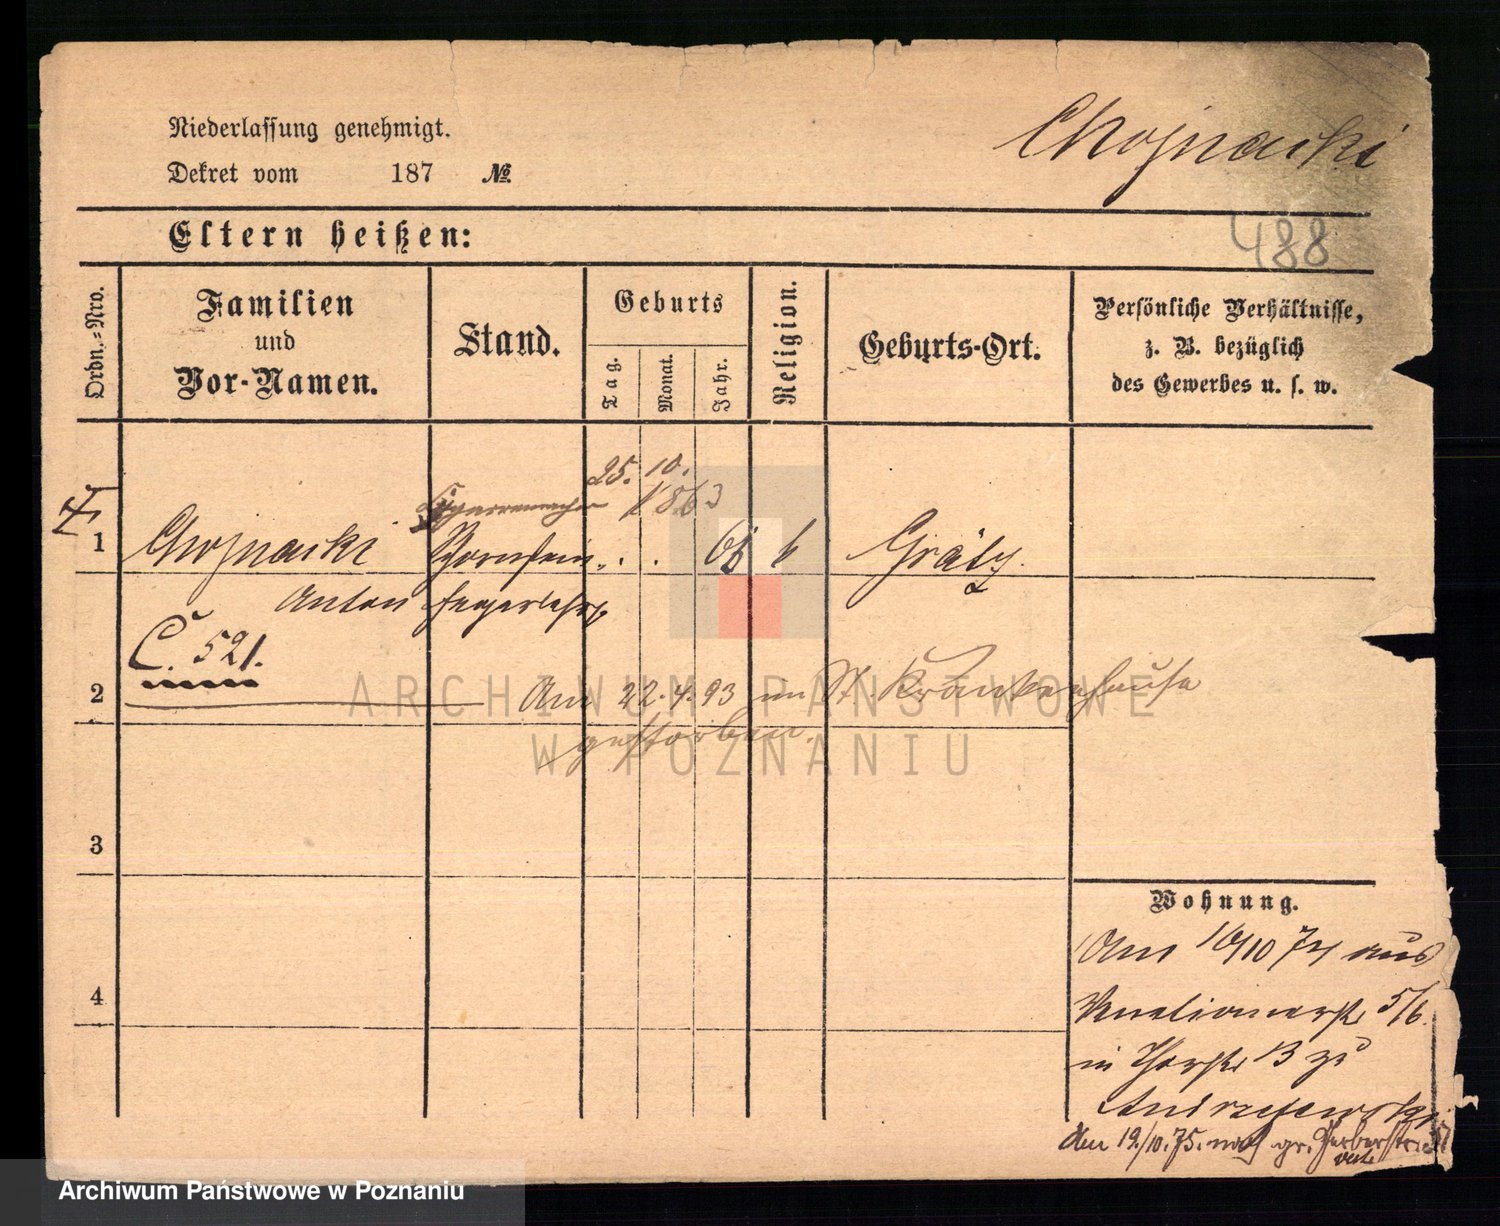 Niederlassung genehmigt.
Dekret vom 187 №.
Chojnacki
488
Eltern heißen:
Ordn.-Nro.
Familien
und
Vor-Namen.
Stand.
Geburts
Tag.
Monat.
Jahr.
Religion.
Geburts-Ort.
Persönliche Verhältnisse,
z. B. bezüglich
des Gewerbes u. s. w.
25. 10.
Cigarrenmacher 1863
1 Chojnacki Schornstein- k Grätz
Anton fegerlehrl
C. 521.
2 Am 22.4.93 im St. Krankenhause
gestorben.
3
4
Wohnung.
Am 10/10 74 aus
Venetianerstr 5/6.
in Thorstr 13 zu
Andrzejewski
Den 19./10.75. nach gr. Gerberstr.
ARCHIWUM PAŃSTWOWE
W POZNANIU
Archiwum Państwowe w Poznaniu